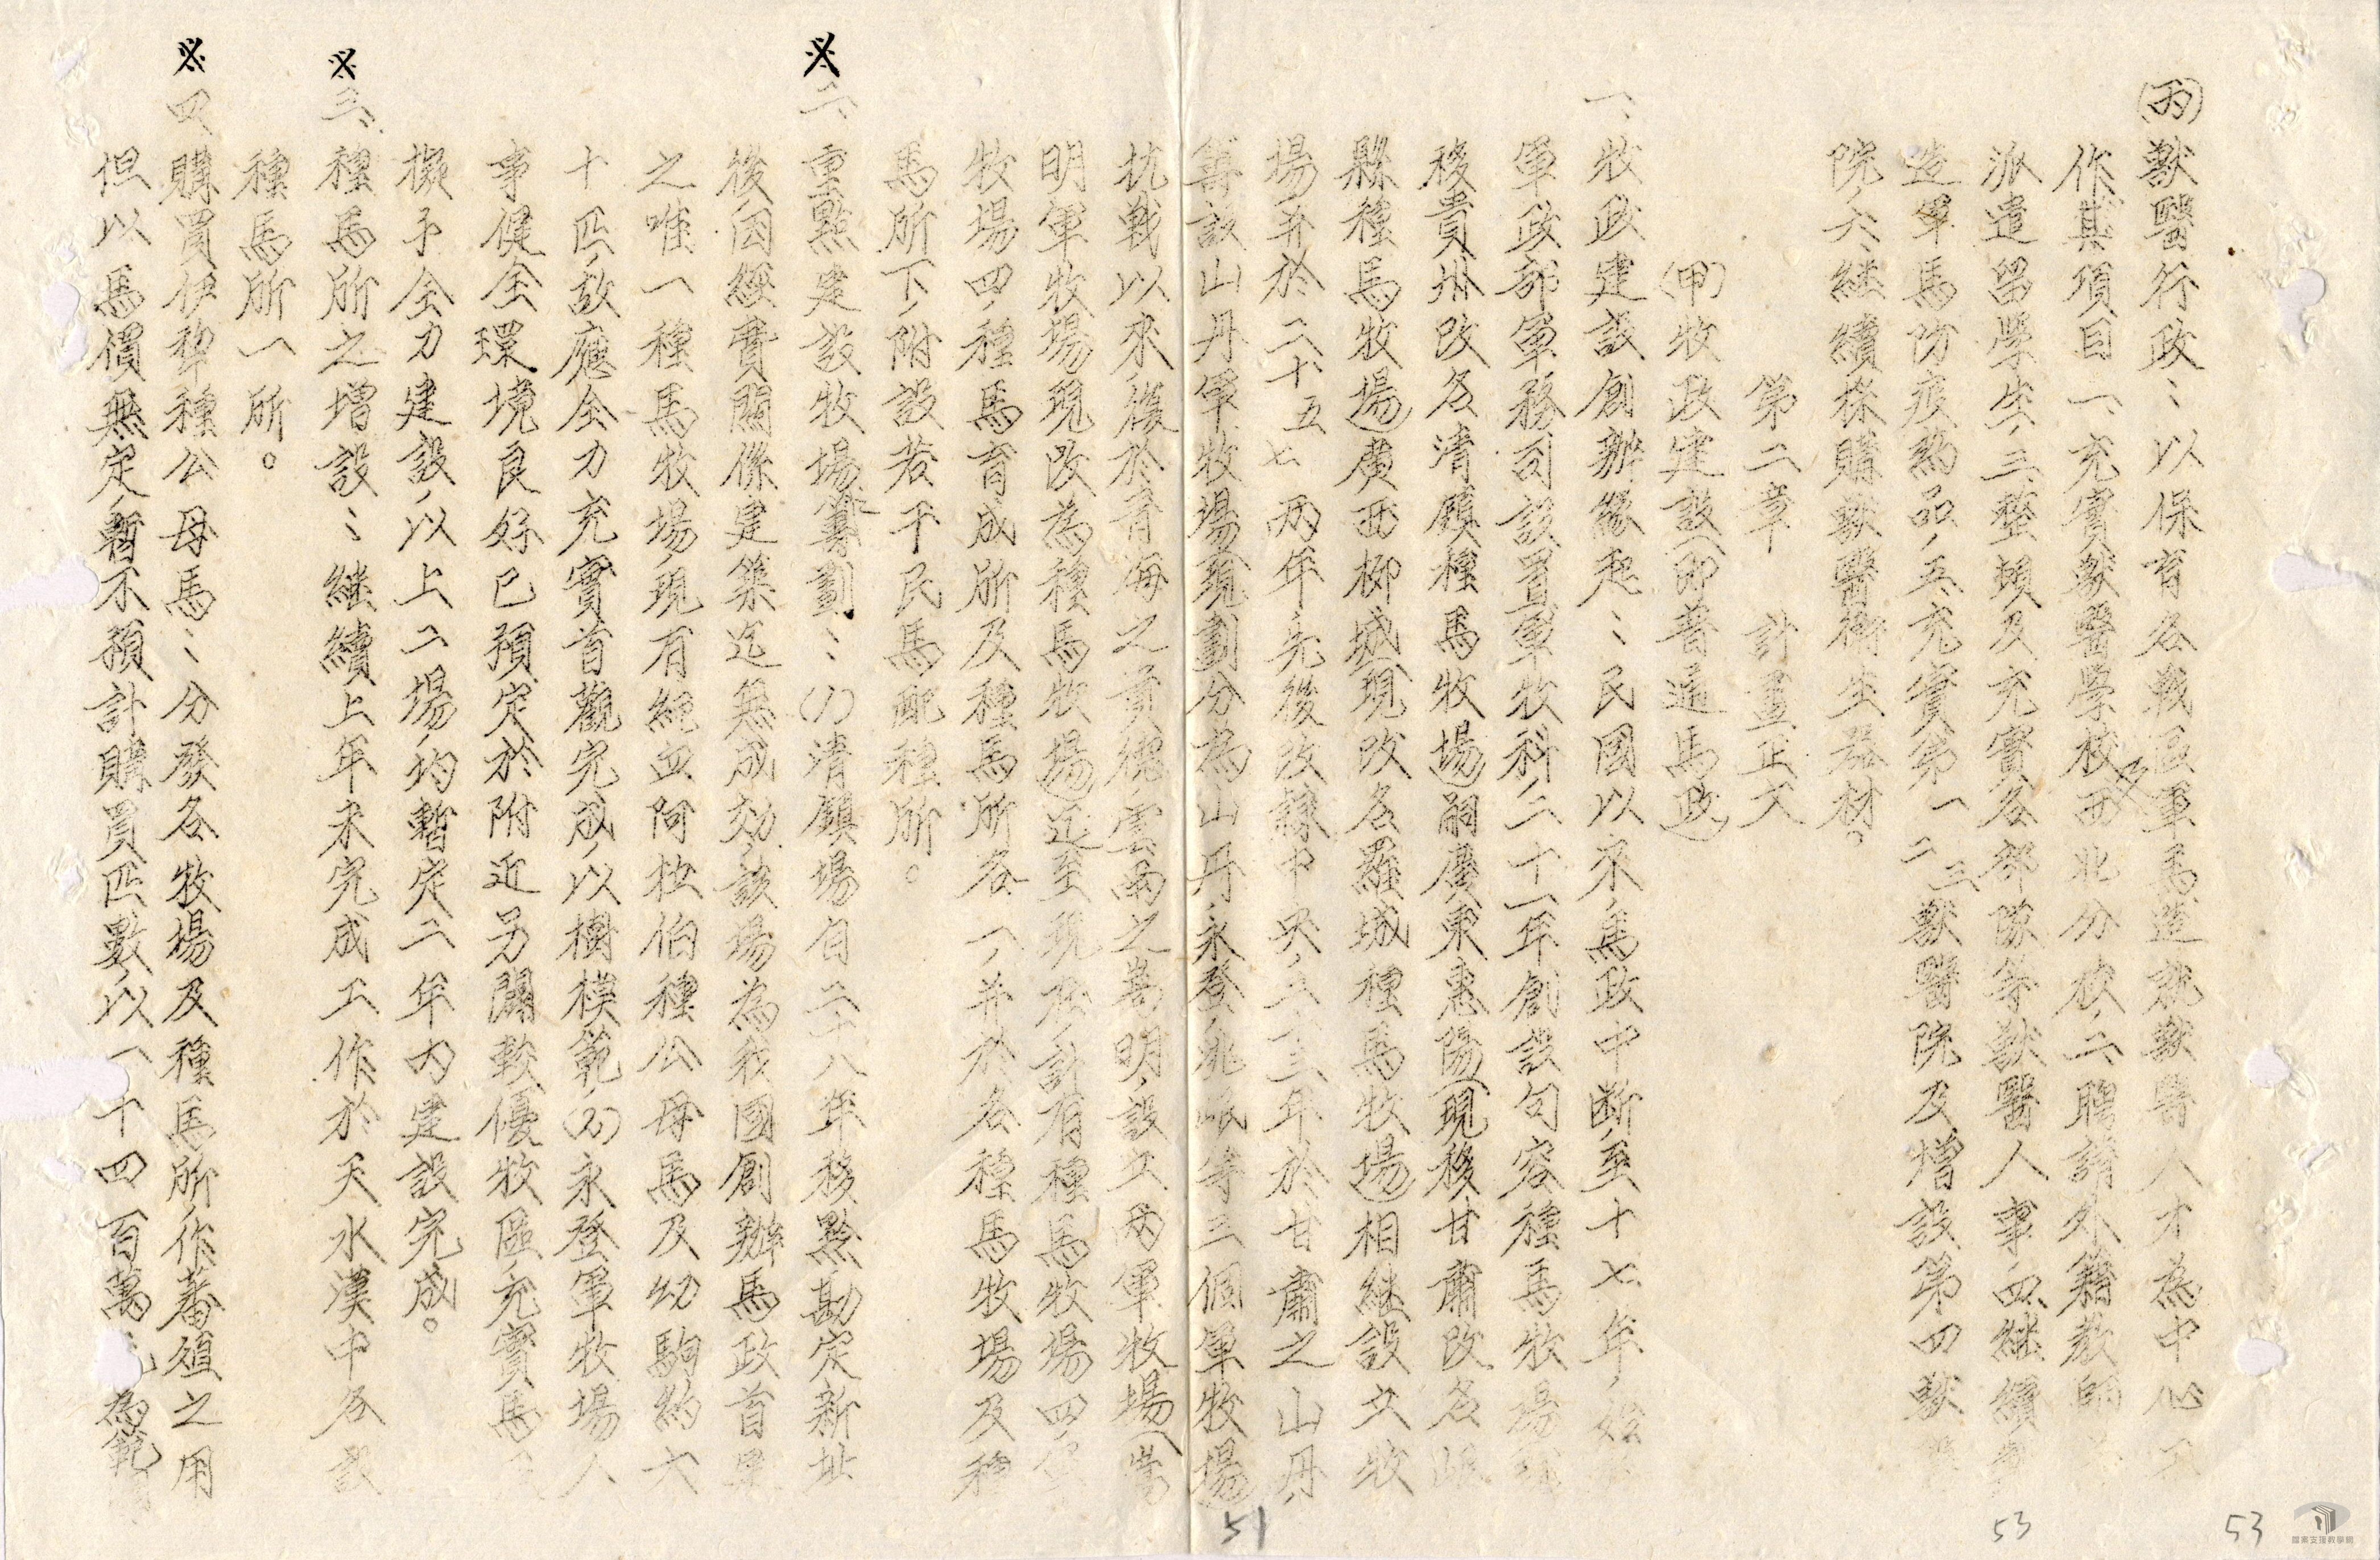 (丙)獸醫行政：以保育各戰區軍馬造就獸醫人才為中心工
作其項目一、充實獸醫學校及西北分校，二、聘請外籍教師
派遣留學生，三、整頓及充實各部隊等獸醫人事，四、繼續
造軍馬防疫藥品，五、充實第一二三獸醫院及增設第四獸
院，六、繼續採購獸醫衛生器材。
第二章 計畫正文
(甲)牧政建設(即普通馬政)
一、牧政建設創辦緣起：民國以來，馬政中斷，至十七年，始
軍政部軍務司設置軍牧科，二十一年創設句容種馬牧場(現
移貴州改名清鎮種馬牧場)嗣廣東惠陽(現移甘肅改名岷
縣種馬牧場)廣西柳城(現改名羅城種馬牧場)相繼設立牧
場，并於二十五七兩年先後改隸中央，二十三年於甘肅之山丹，
籌設山丹軍牧場(現劃分為山丹，永登，洮岷等三個軍牧場)
抗戰以來，復於青海之貴德，雲南之嵩明，設立兩軍牧場(嵩
明軍牧場現改為種馬牧場)迄至現在，計有種馬牧場四，軍
牧場四，種馬育成所及種馬所各一，并於各種馬牧場及種
馬所下，附設若干民馬配種所。
※二、重點建設牧場籌劃：(1)清鎮場自二十八年移黔勘定新址
後，因經費關係建築迄無成効，該場為我國創辦馬政首
之唯一種馬牧場，現有純血阿柆伯種公母馬及幼駒約六
十匹，故應全力充實首觀完成，以樹模範，(2)永登軍牧場人
事健全環境良好已預定於附近另闢較優牧區，充實馬
擬予全力建設，以上二場，均暫定二年內建設完成。
※三、種馬所之增設：繼續上年未完成工作於天水漢中各設
種馬所一所。
※四、購買伊犂種公母馬：分發各牧場及種馬所，作蕃殖之用
但以馬價無定，暫不預計購買匹數，以一十四百萬元為範
51
53
53
檔案支援教學網